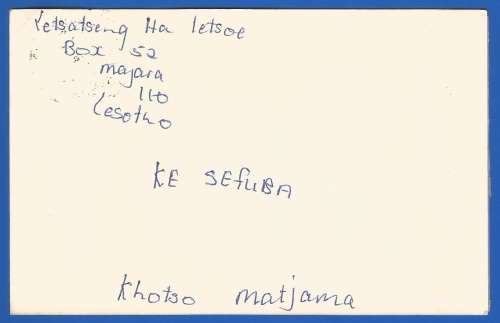 Letsatseng Ha letsoe
Box 52
majara
110
Lesotho
KE SEfuBA
Khotso matjama